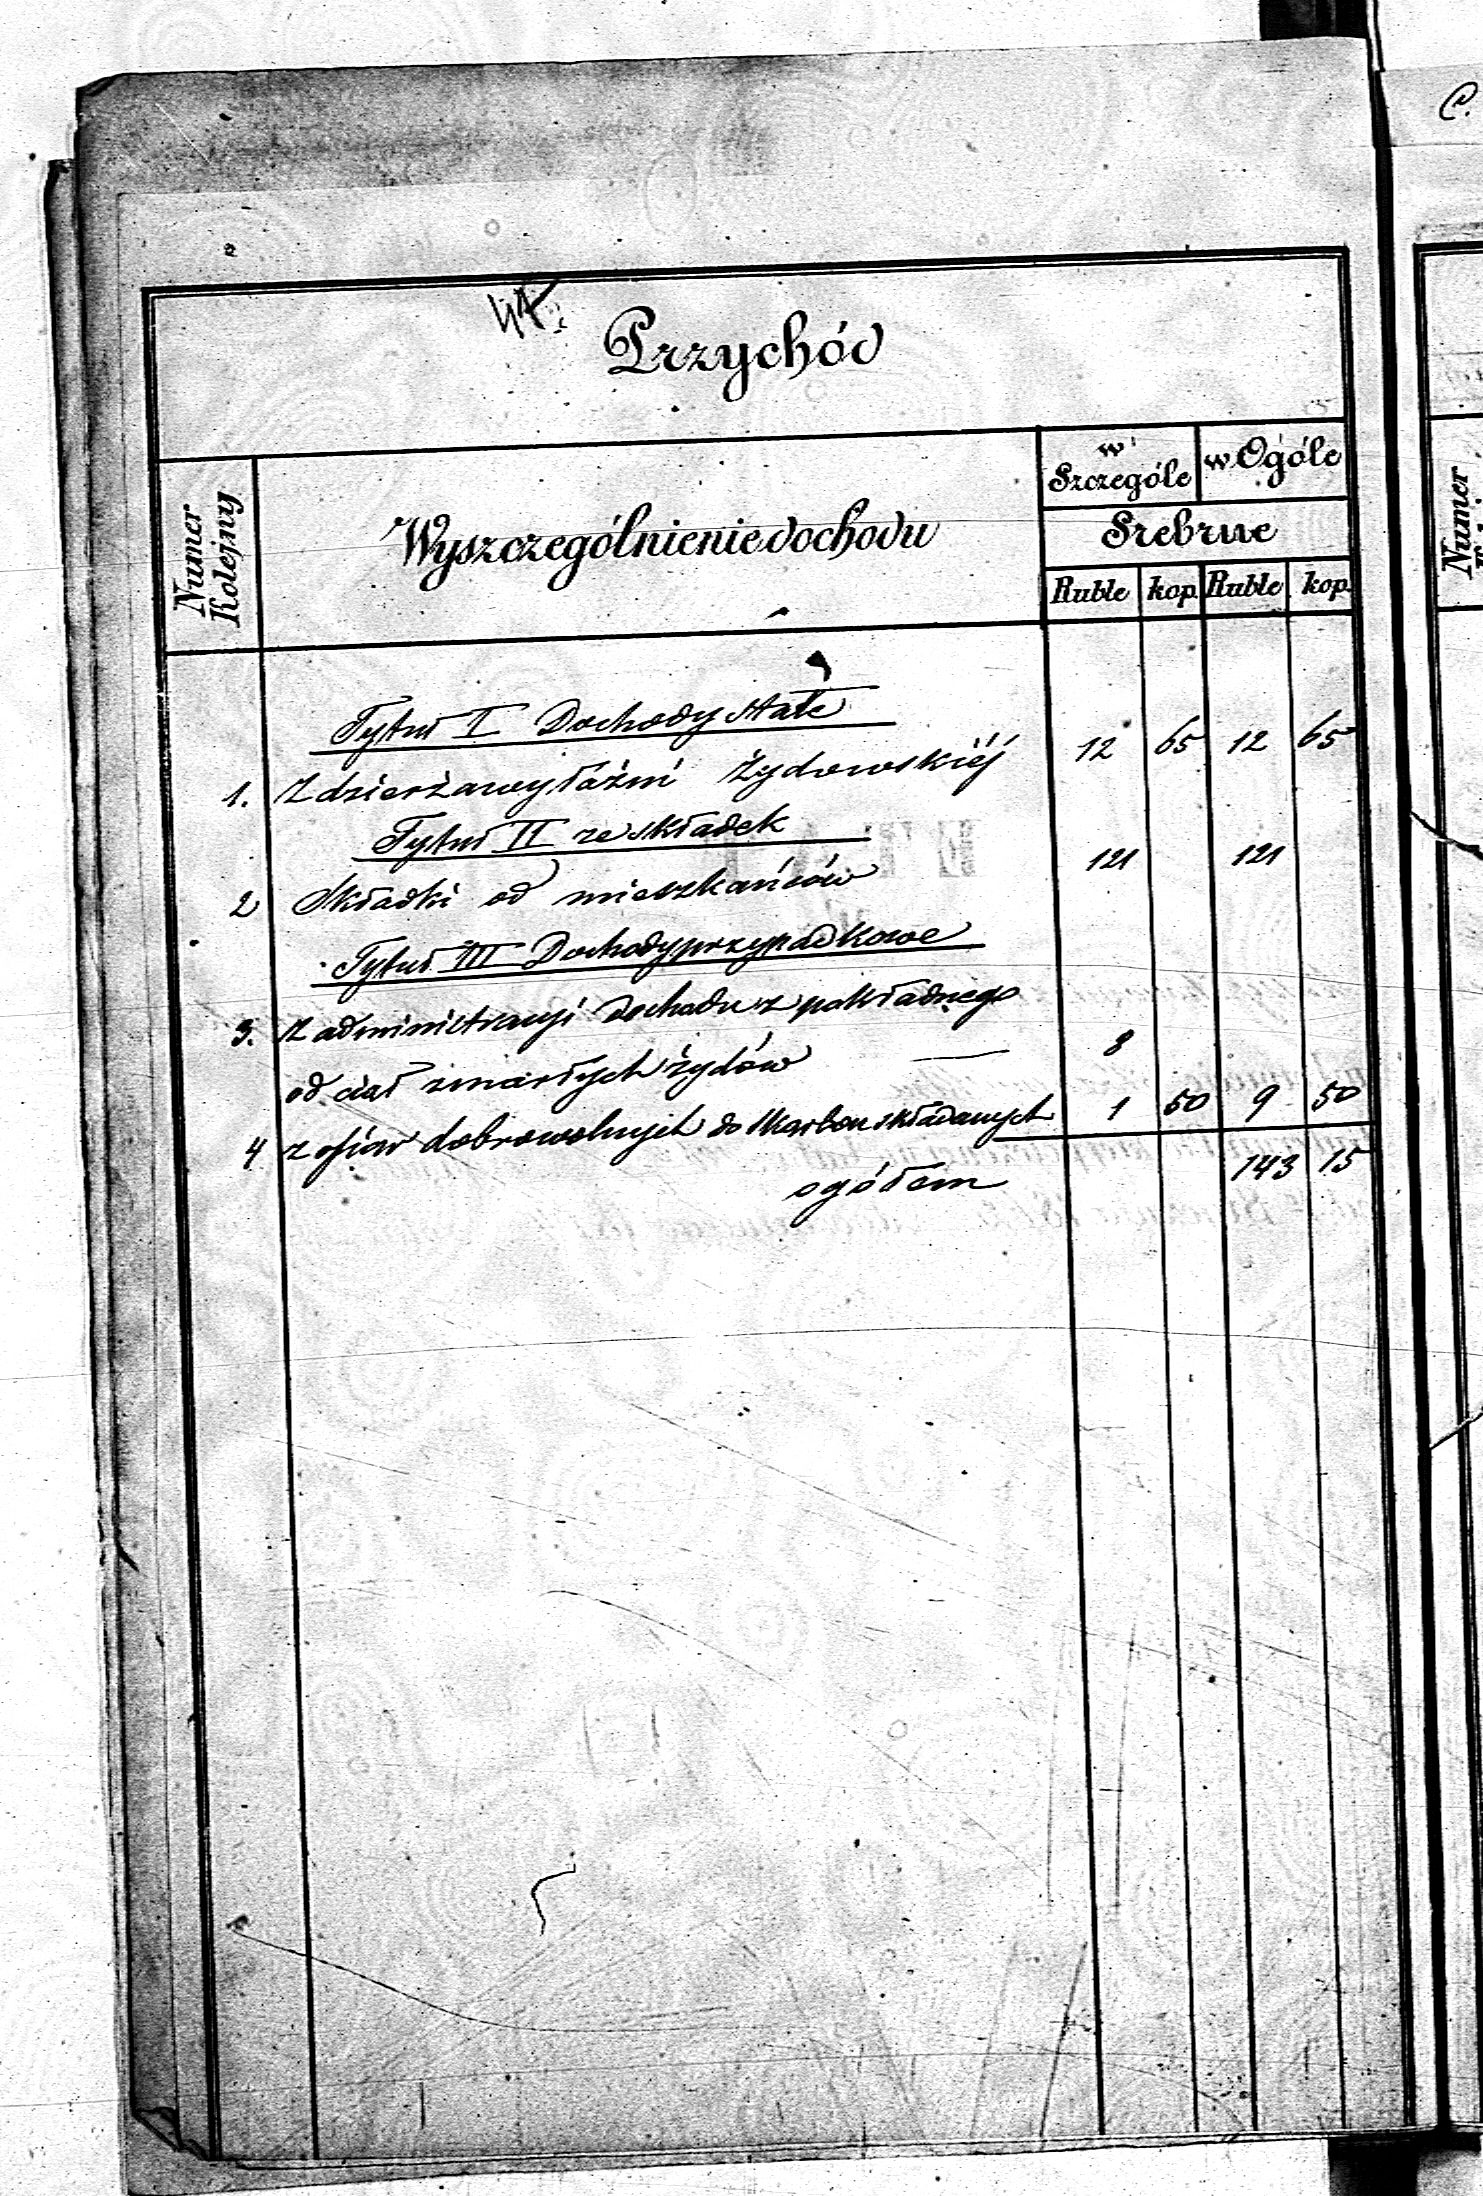 Przychód
Numer Kolejny
Wyszczególnienie dochodu
w Szczególe
w Ogóle
Srebrne
Ruble kop. Ruble kop.
Tytuł I Dochody stałe
1. Z dzierżawy łaźni żydowskiéj 12 65 12 65
Tytuł II ze składek
2 Składki od mieszkańców 121 121
Tytuł III Dochody przypadkowe
3. Z administracyi dochodu z pokładnego
od ciał zmarłych żydów — 8
4 z ofiar dobrowolnych do skarbon składanych 1 50 9 50
ogółem 143 15
C.
Numer